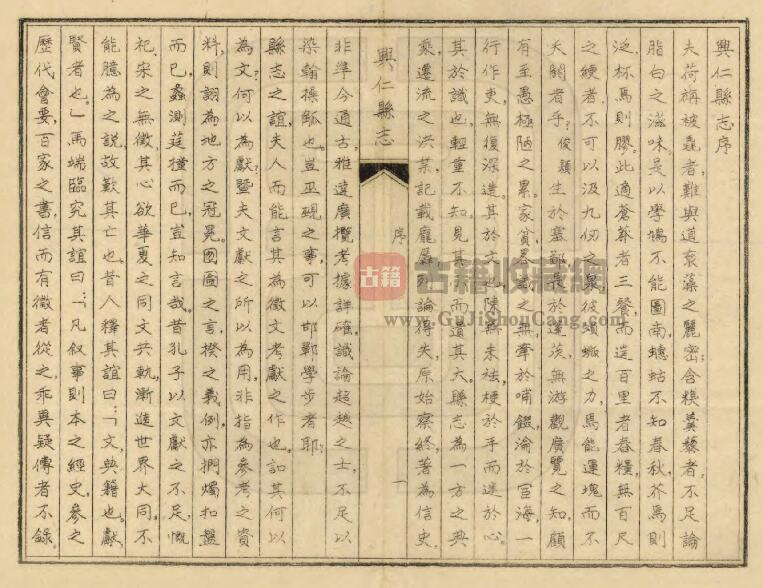 興仁縣志序
夫荷稱被毳者,難與道袞藻之麗密;含糗羹藜者,不足論
脂白之滋味。是以學鳩不能圖南,蟪蛄不知春秋,芥為則
泛,杯焉則膠。此適蒼莽者三餐,而造百里者舂糧。無百尺
之綆者,不可以汲九仞之泉,彼蝜蝂之力,焉能運塊而不
夭閼者乎?俊穎生於塞鄙,長於蓬茨,無游觀廣覽之知,顧
有至愚極陋之累。家貧,牽於哺餟,淪於宦海,一
行作吏,無復深造。其於文也,陳無未祛,梗於手而迷於心。
其於識也,輕重不知,見其小而遺其大。縣志為一方之典
乘,遷流之洪,記載龐,列論得失,原始察終,著為信史,
興仁縣志
序
一
非準今通古,雅達廣攬,考據詳確,識論超越之士,不足以
染翰操觚也。豈巫覡之事,可以邯鄲學步者耶?
縣志之誼,夫人而能言其為徵文考獻之作也。如其何以
為文?何以為獻?暨夫文獻之所以為用,非指為參考之資
料,則詡為地方之冠冕。國圖之言,揆之義例,亦捫燭扣盤
而已,蠡測莛撞而已,豈知言哉。昔孔子以文獻之不足,慨
杞宋之無徵,其心欲華夏之同文共軌,漸進世界大同。不
能臆為之說,故歎其亡也。昔人釋其誼曰:「文,典籍也。獻,
賢者也。」馬端臨究其誼曰:「凡叙事則本之經史,參之
歷代會要,百家之書,信而有徵者從之,乖異疑傳者不錄。
古籍
古籍收藏網
www.GuJiShouCang.com